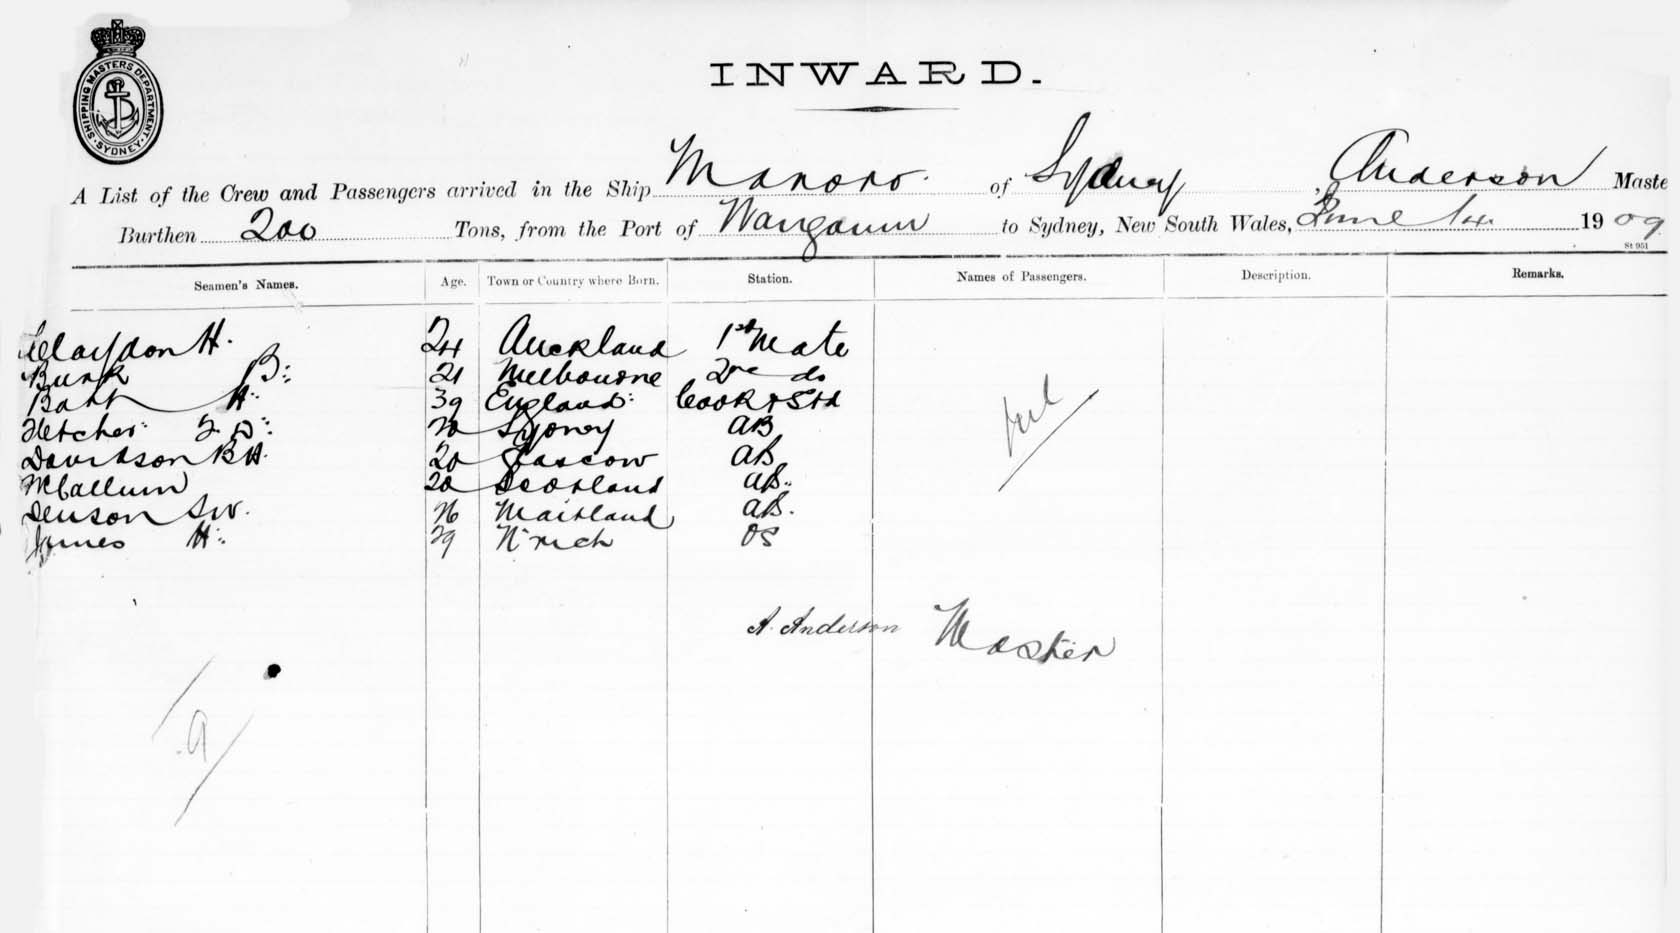 SHIPPING MASTERS DEPARTMENT. SYDNEY.
INWARD.
A List of the Crew and Passengers arrived in the Ship Manoro. of Sydney, Anderson Maste
Burthen 200 Tons, from the Port of Wanganui to Sydney, New South Wales, June 14 1909
St 951
Seamen's Names. Age. Town or Country where Born. Station. Names of Passengers. Description. Remarks.
Claydon H. 24 Auckland 1st Mate
Bunk B: 21 Melbourne 2nd do
H: 39 England: Cook & Std
Fletcher: 20 Sydney AB
Davidson BH. 20 Glascow AB
McCallum 20 Scotland AB:
Jenson SW. 26 Maitland AB.
James H: 29 N'wich OS
nil
A. Anderson Master
9